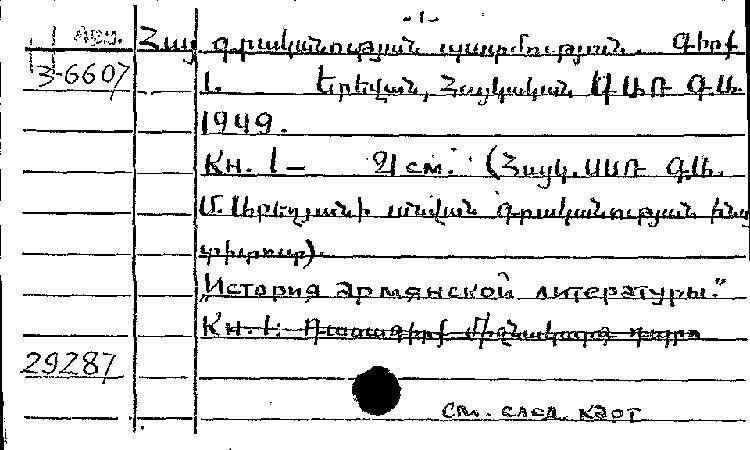 - 1 -
Арм. Հայ գրականության պատմություն. Գիրք
3-6607 1. Երեվան, Հայկական ՍՍՌ ԳԱ.
1949.
Кн. 1 – 21 см. (Հայկ. ՍՍՌ Գ.Ա.
Մ. Աբեղյանի անվան գրականության ինս
տիտուտ).
„История армянской литературы."
Кн. 1.
29287
См. след. карт